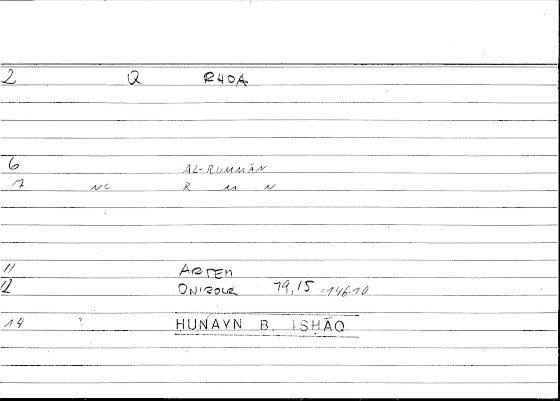 2 Q RHOA
6 AL-RUMMĀN
7 NC R M N
11 ARTEM
12 ONIROCR 79,15 - 146.10
14 ? HUNAYN B. ISHĀQ